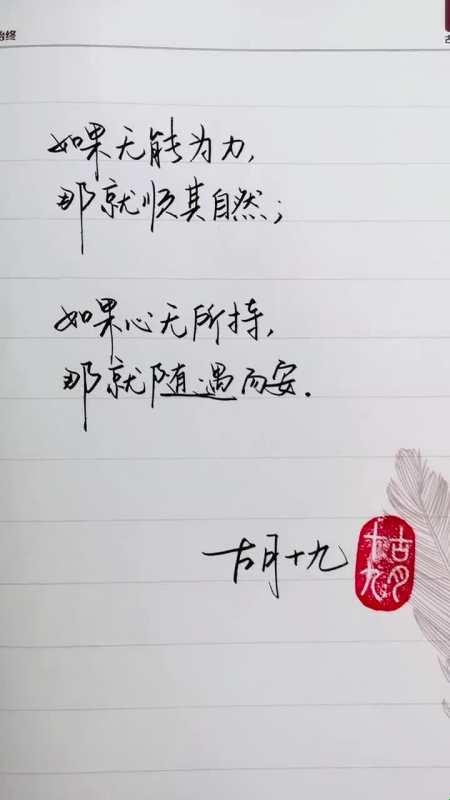 始终
古
如果无能为力，
那就顺其自然；
如果心无所持，
那就随遇而安.
古月十九
古月十九